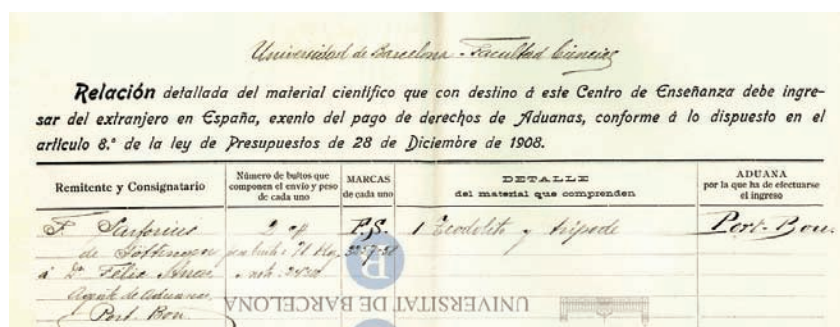 Universidad de Barcelona - Facultad Ciencias
Relación detallada del material científico que con destino á este Centro de Enseñanza debe ingre-
sar del extranjero en España, exento del pago de derechos de Aduanas, conforme á lo dispuesto en el
artículo 8.º de la ley de Presupuestos de 28 de Diciembre de 1908.
Remitente y Consignatario
Número de bultos que
componen el envío y peso
de cada uno
MARCAS
de cada uno
DETALLE
del material que comprenden
ADUANA
por la que ha de efectuarse
el ingreso
F. Sartorius 2 F.S. 1 Teodolito y trípode Port-Bou.
de Göttingen
á Dn Félix
Agente de Aduanas,
Port Bou
UNIVERSITAT DE BARCELONA
B